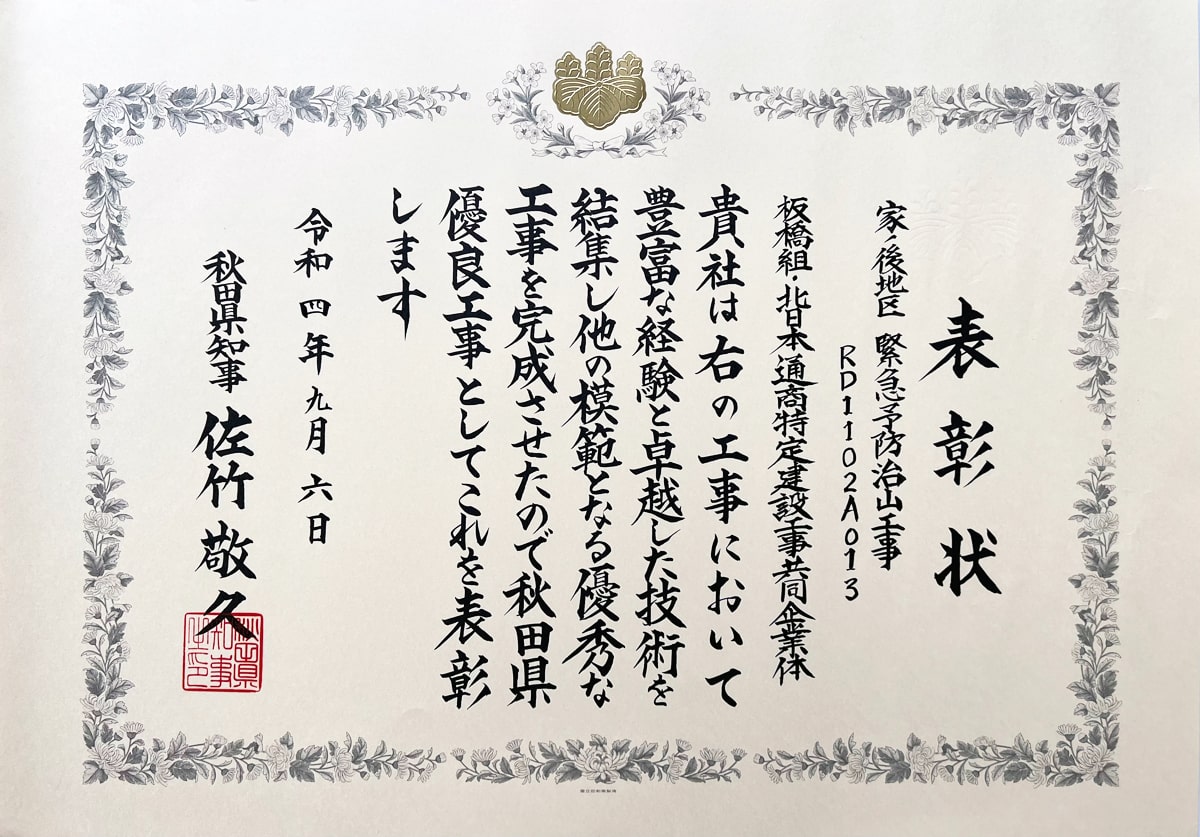 表彰状
家ノ後地区 緊急予防治山工事
RD1102A013
板橋組・北日本通商特定建設工事共同企業体
貴社は右の工事において
豊富な経験と卓越した技術を
結集し他の模範となる優秀な
工事を完成させたので秋田県
優良工事としてこれを表彰
します
令和四年九月六日
秋田県知事 佐竹敬久